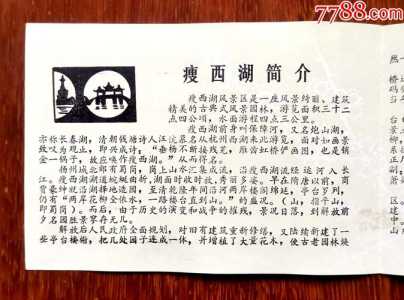 7788.com
瘦西湖简介
瘦西湖风景区是一座风景绮丽，建筑
精美的古典式风景园林，游览面积三十二
点四公顷，水面游程四点三公里。
瘦西湖前身叫保障河，又名炮山湖，
亦称长春湖，清朝钱塘诗人汪沆慕名从杭州西湖来此游览，面对如画景
致叹为观止，即兴成诗：“垂杨不断接残芜，雁齿虹桥俨画图，也是销
金一锅子，故应唤作瘦西湖。”从而得名。
扬州城北郊有蜀岗，岗上山水汇集成流，沿瘦西湖流经运河入长
江。瘦西湖湖道曲曲折，湖面时收时放，秀丽多姿。早在隋唐以前，商
官豪绅就沿湖择地造园，至清乾隆年间沿河两岸楼阁绵延，亭台罗列，
仍有“两岸花柳全依水，一路楼台直到山。”的盛况。（山，指平山，
即蜀岗）。而后，由于历史的演变和战争的摧残，景况日落，到解放前
夕名园胜景零存无几。
解放后人民政府全面规划，对旧有建筑重新修缮，又陆续新建了一
些亭台楼榭，把几处园子连成一体，并增植了大量花木，使古老园林焕